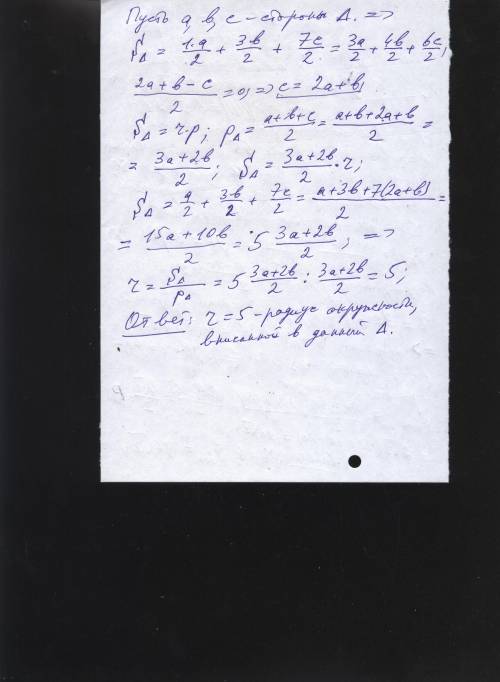 Пусть a, в, c – стороны Δ. =>
S_Δ = 1·a/2 + 3в/2 + 7c/2 = 3a/2 + 4в/2 + 6c/2;
(2a+в−c)/2 = 0; => c = 2a+в;
S_Δ = r·p; p_Δ = (a+в+c)/2 = (a+в+2a+в)/2 =
= (3a+2в)/2; S_Δ = (3a+2в)/2 · r;
S_Δ = a/2 + 3в/2 + 7c/2 = (a+3в+7(2a+в))/2 =
= (15a+10в)/2 = 5 (3a+2в)/2; =>
r = S_Δ/p_Δ = 5 (3a+2в)/2 : (3a+2в)/2 = 5;
Ответ: r = 5 – радиус окружности,
вписанной в данный Δ.